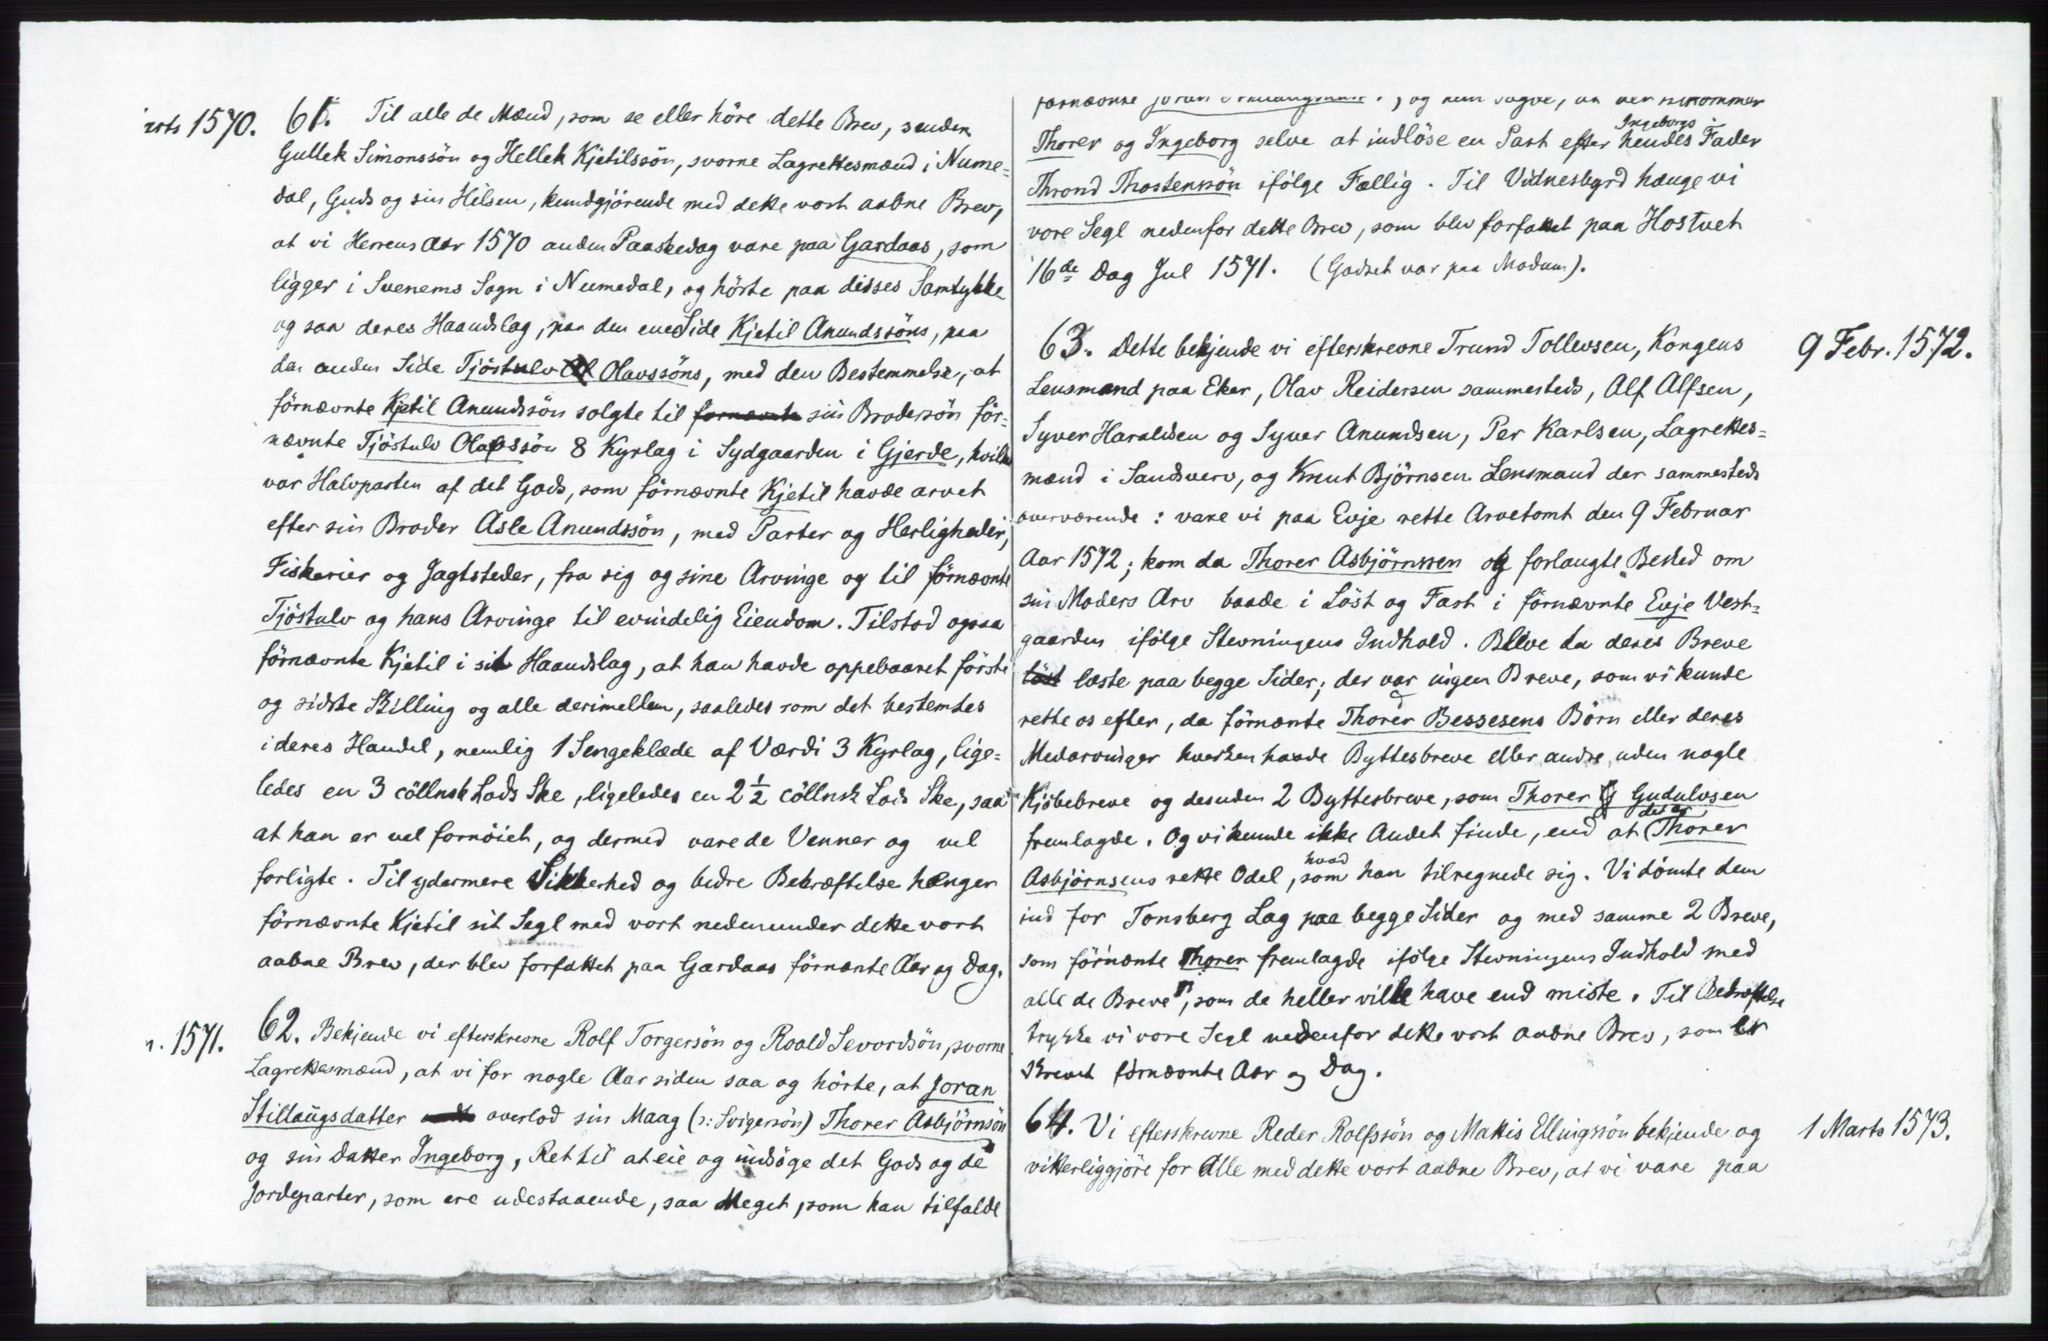 arts 1570.
61. Til alle de Mænd, som se eller höre dette Brev, sender
Gullek Simonssön og Hellek Kjetilssön, svorne Lagrettesmænd i Nume-
dal, Guds og sin Hilsen, kundgjörende med dette vort aabne Brev,
at vi Herrens Aar 1570 anden Paaskedag vare paa Gardaas, som
ligger i Svenems Sogn i Numedal, og hörte paa disses Samtykke
og saa deres Haandslag, paa den ene Side Kjetil Anundssöns, paa
den anden Side Tjöstulv Olavssöns, med den Bestemmelse, at
förnævnte Kjetil Anundssön solgte til fornævnte sin Brodersön för-
nævnte Tjöstulv Olafssön 8 Kyrlag i Sydgaarden i Gjerde, hvilke
var Halvparten af det Gods, som förnævnte Kjetil havde arvet
efter sin Broder Asle Anundssön, med Parter og Herligheder,
Fiskerier og Jagtsteder, fra sig og sine Arvinge og til förnævnte
Tjöstulv og hans Arvinge til evindelig Eiendom. Tilstod ogsaa
förnævnte Kjetil i sit Haandslag, at han havde oppebaaret förste
og sidste Skilling og alle derimellem, saaledes som det bestemtes
i deres Handel, nemlig 1 Sengeklæde af Værdi 3 Kyrlag, lige-
ledes en 3 cöllnsk Lods Ske, ligeledes en 2½ cöllnsk Lods Ske, saa
at han er vel fornöiet, og dermed vare de Venner og vel
forligte. Til ydermere Sikkerhed og bedre Bekræftelse hænger
förnævnte Kjetil sit Segl med vort nedenunder dette vort
aabne Brev, der blev forfattet paa Gardaas förnænte Aar og Dag.
n. 1571.
62. Bekjende vi efterskrevne Rolf Torgersön og Roald Sevordsön, svorne
Lagrettesmænd, at vi for nogle Aar siden saa og hörte, at Joran
Stillaugsdatter overlod sin Maag (ɔ: Svigersön) Thorer Asbjörnsön
og sin Datter Ingeborg, Ret til at eie og indsöge det Gods og de
Jordparter, som ere udestaaende, saa Meget, som han tilfaldt
Thorer og Ingeborg selve at indlöse en Part efter hendes Ingeborgs Fader
Thrond Thostenssön ifölge Fællig. Til Vidnesbyrd hænge vi
vore Segl nedenfor dette Brev, som blev forfattet paa Hostvet
16de Dag Jul 1571. (Godset var paa Modum).
63. Dette bekjende vi efterskrevne Trund Tollevsen, Kongens
9 Febr. 1572.
Lensmand paa Eker, Olav Reidersen sammesteds, Alf Alfsen,
Syver Haraldsen og Syver Anundsen, Per Karlsen, Lagrettes-
mænd i Sandsverv, og Knut Bjørnsen Lensmand der sammesteds
overværende: vare vi paa Evje rette Arvetomt den 9 Februar
Aar 1572; kom da Thorer Asbjörnssen og forlangte Besked om
sin Moders Arv baade i Löst og Fast i förnævnte Evje Vest-
gaarden ifölge Stevningens Indhold. Bleve da deres Breve
löst læste paa begge Sider; der var ingen Breve, som vi kunde
rette os efter, da förnænte Thorer Bessesens Börn eller deres
Medarvinger hverken havde Byttesbreve eller andre, uden nogle
Kjöbebreve og desuden 2 Byttesbreve, som Thorer Gudulvsen
fremlagde. Og vi kunde ikke Andet finde, end at det er Thorer
Asbjörnsens rette Odel, som hvad han tilregnede sig. Vi dömte dem
ind for Tonsberg Lag paa begge Sider og med samme 2 Breve,
som förnænte Thorer fremlagde ifölge Stevningens Indhold med
alle de Breve, som de heller ville have end miste. Til Bekræftelse
trykke vi vore Segl nedenfor dette vort aabne Brev, som er
Skrevet förnævnte Aar og Dag.
64. Vi efterskrevne Reder Rolfssön og Mattis Ellingssön bekjende og
1 Marts 1573.
vitterliggjöre for Alle med dette vort aabne Brev, at vi vare paa